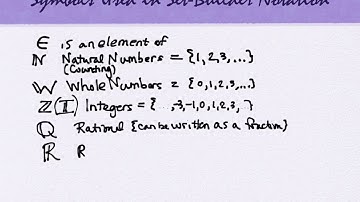 Symbols Used in Set-Builder Notation
∈ is an element of
ℕ Natural Numbers = {1, 2, 3, ...}
(Counting)
𝕎 Whole Numbers = {0, 1, 2, 3, ...}
ℤ(𝕀) Integers = {..., -3, -1, 0, 1, 2, 3, }
ℚ Rational {can be written as a fraction}
ℝ R